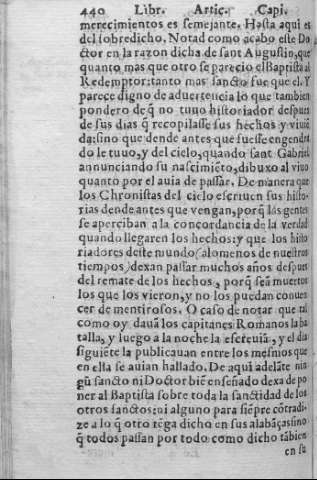 440 Libr. Artic. Capi.
merecimientos es semejante. Hasta aqui es
del sobredicho. Notad como acabo este Do
ctor en la razon dicha de sant Augustin, que
quanto mas que otro se parecio el Baptista al
Redemptor: tanto mas sancto fue que el. Y
parece digno de aduertencia lo que tambien
pondero de q̃ no tuuo historiador despues
de sus dias q̃ recopilasse sus hechos y viuiẽ
da: sino que dende antes que fuesse engendra
do le tuuo, y del cielo, quando sant Gabriel
annunciando su nascimiẽto, dibuxo al viuo
quanto por el auia de passar. De manera que
los Chronistas del cielo escriuen sus histo-
rias dende antes que vengan, porq̃ las gentes
se aperciban a la concordancia de la verdad
quando llegaren los hechos: y que los histo
riadores deste mundo (alomenos de nuestros
tiempos) dexan passar muchos años despues
del remate de los hechos, porq̃ seã muertos
los que los vieron, y no los puedan conuen
cer de mentirosos. O caso de notar que tal
como oy dauã los capitanes Romanos la ba
talla, y luego a la noche la escreuiã, y el dia
siguiẽte la publicauan entre los mesmos que
en ella se auian hallado. De aqui adelãte nin
gũ sancto ni Doctor biẽ enseñado dexa de po
ner al Baptista sobre toda la sanctidad de los
otros sanctos: ni alguno para siẽpre cõtradi-
ze a lo q̃ otro tẽga dicho en sus alabãças: ino
q̃ todos passan por todo como dicho tãbien
en su